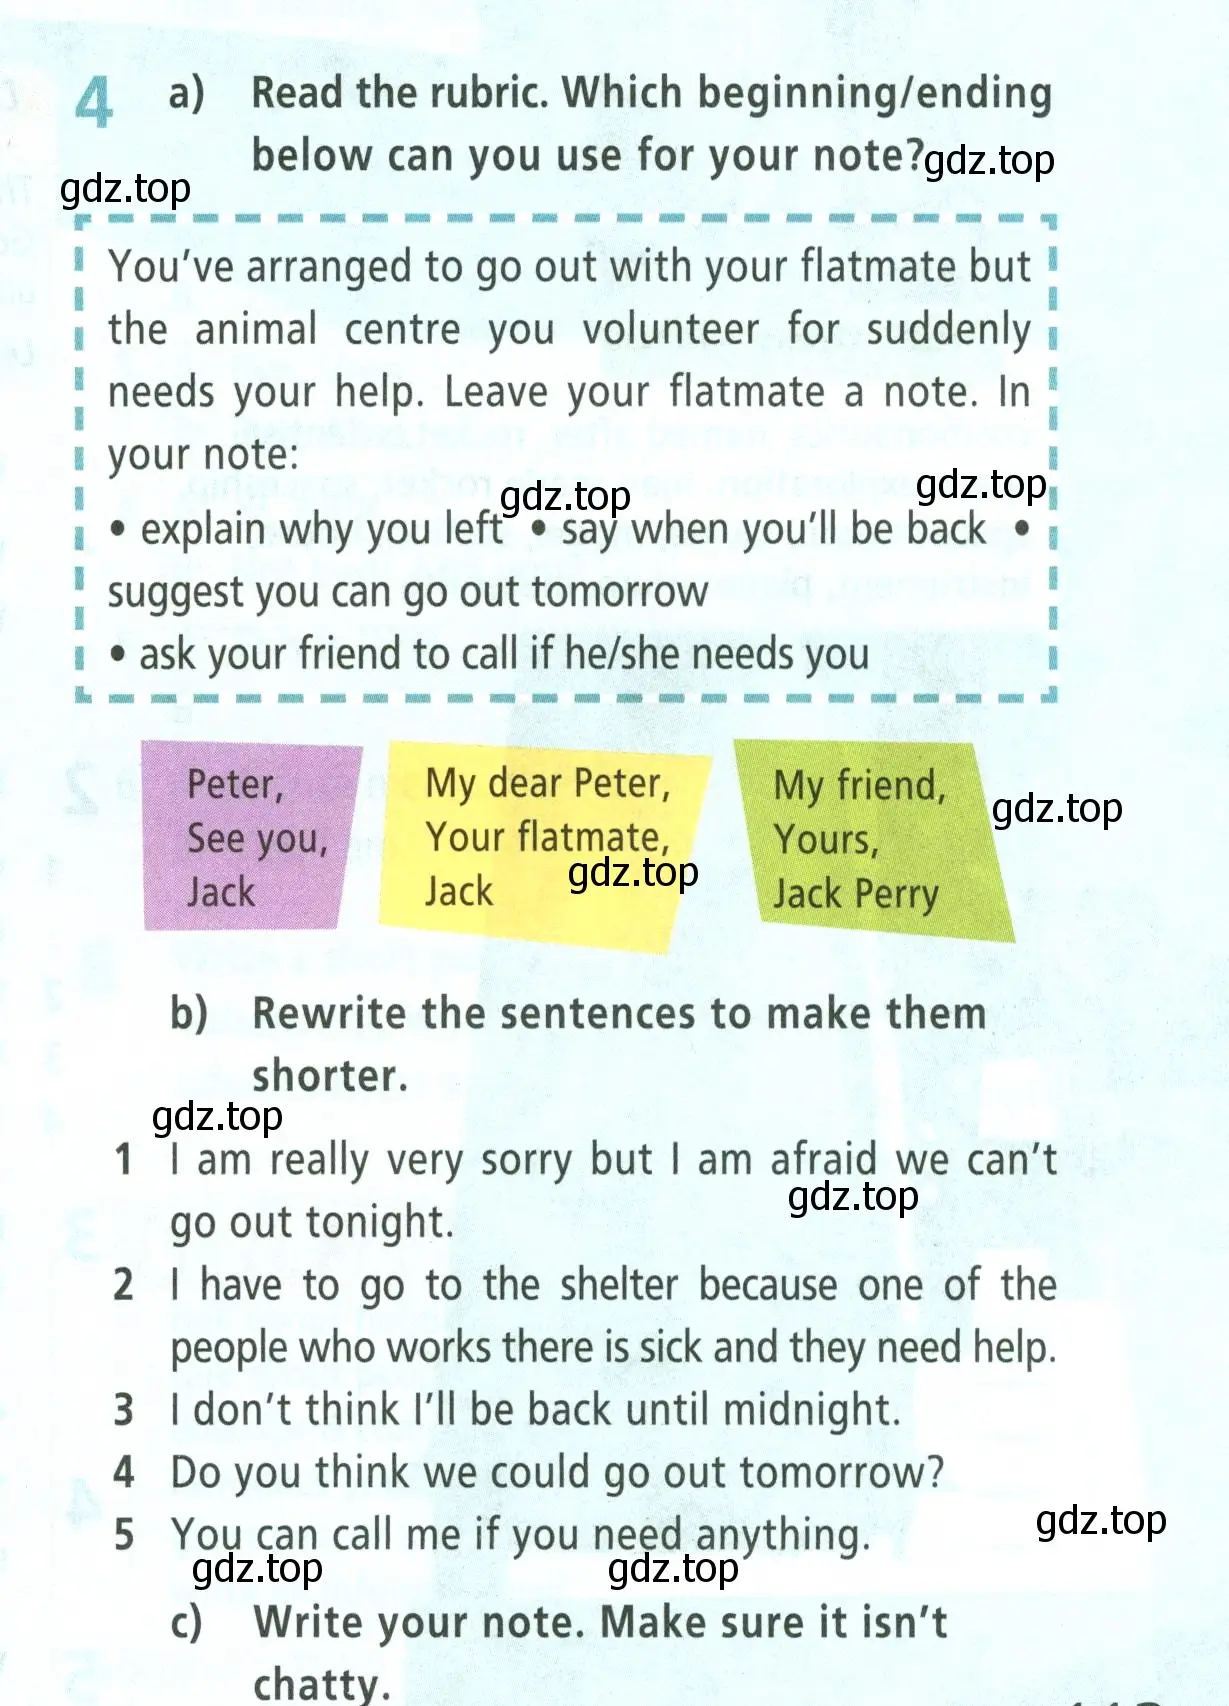 4 a) Read the rubric. Which beginning/ending
below can you use for your note?
gdz.top
gdz.top
You've arranged to go out with your flatmate but
the animal centre you volunteer for suddenly
needs your help. Leave your flatmate a note. In
your note:
gdz.top
gdz.top
• explain why you left • say when you'll be back •
suggest you can go out tomorrow
• ask your friend to call if he/she needs you
Peter,
See you,
Jack
My dear Peter,
Your flatmate,
Jack
gdz.top
My friend,
Yours,
Jack Perry
gdz.top
b) Rewrite the sentences to make them
shorter.
gdz.top
1 I am really very sorry but I am afraid we can't
go out tonight.
gdz.top
2 I have to go to the shelter because one of the
people who works there is sick and they need help.
3 I don't think I'll be back until midnight.
4 Do you think we could go out tomorrow?
5 You can call me if you need anything.
gdz.top
gdz.top
gdz.top
c) Write your note. Make sure it isn't
chatty.